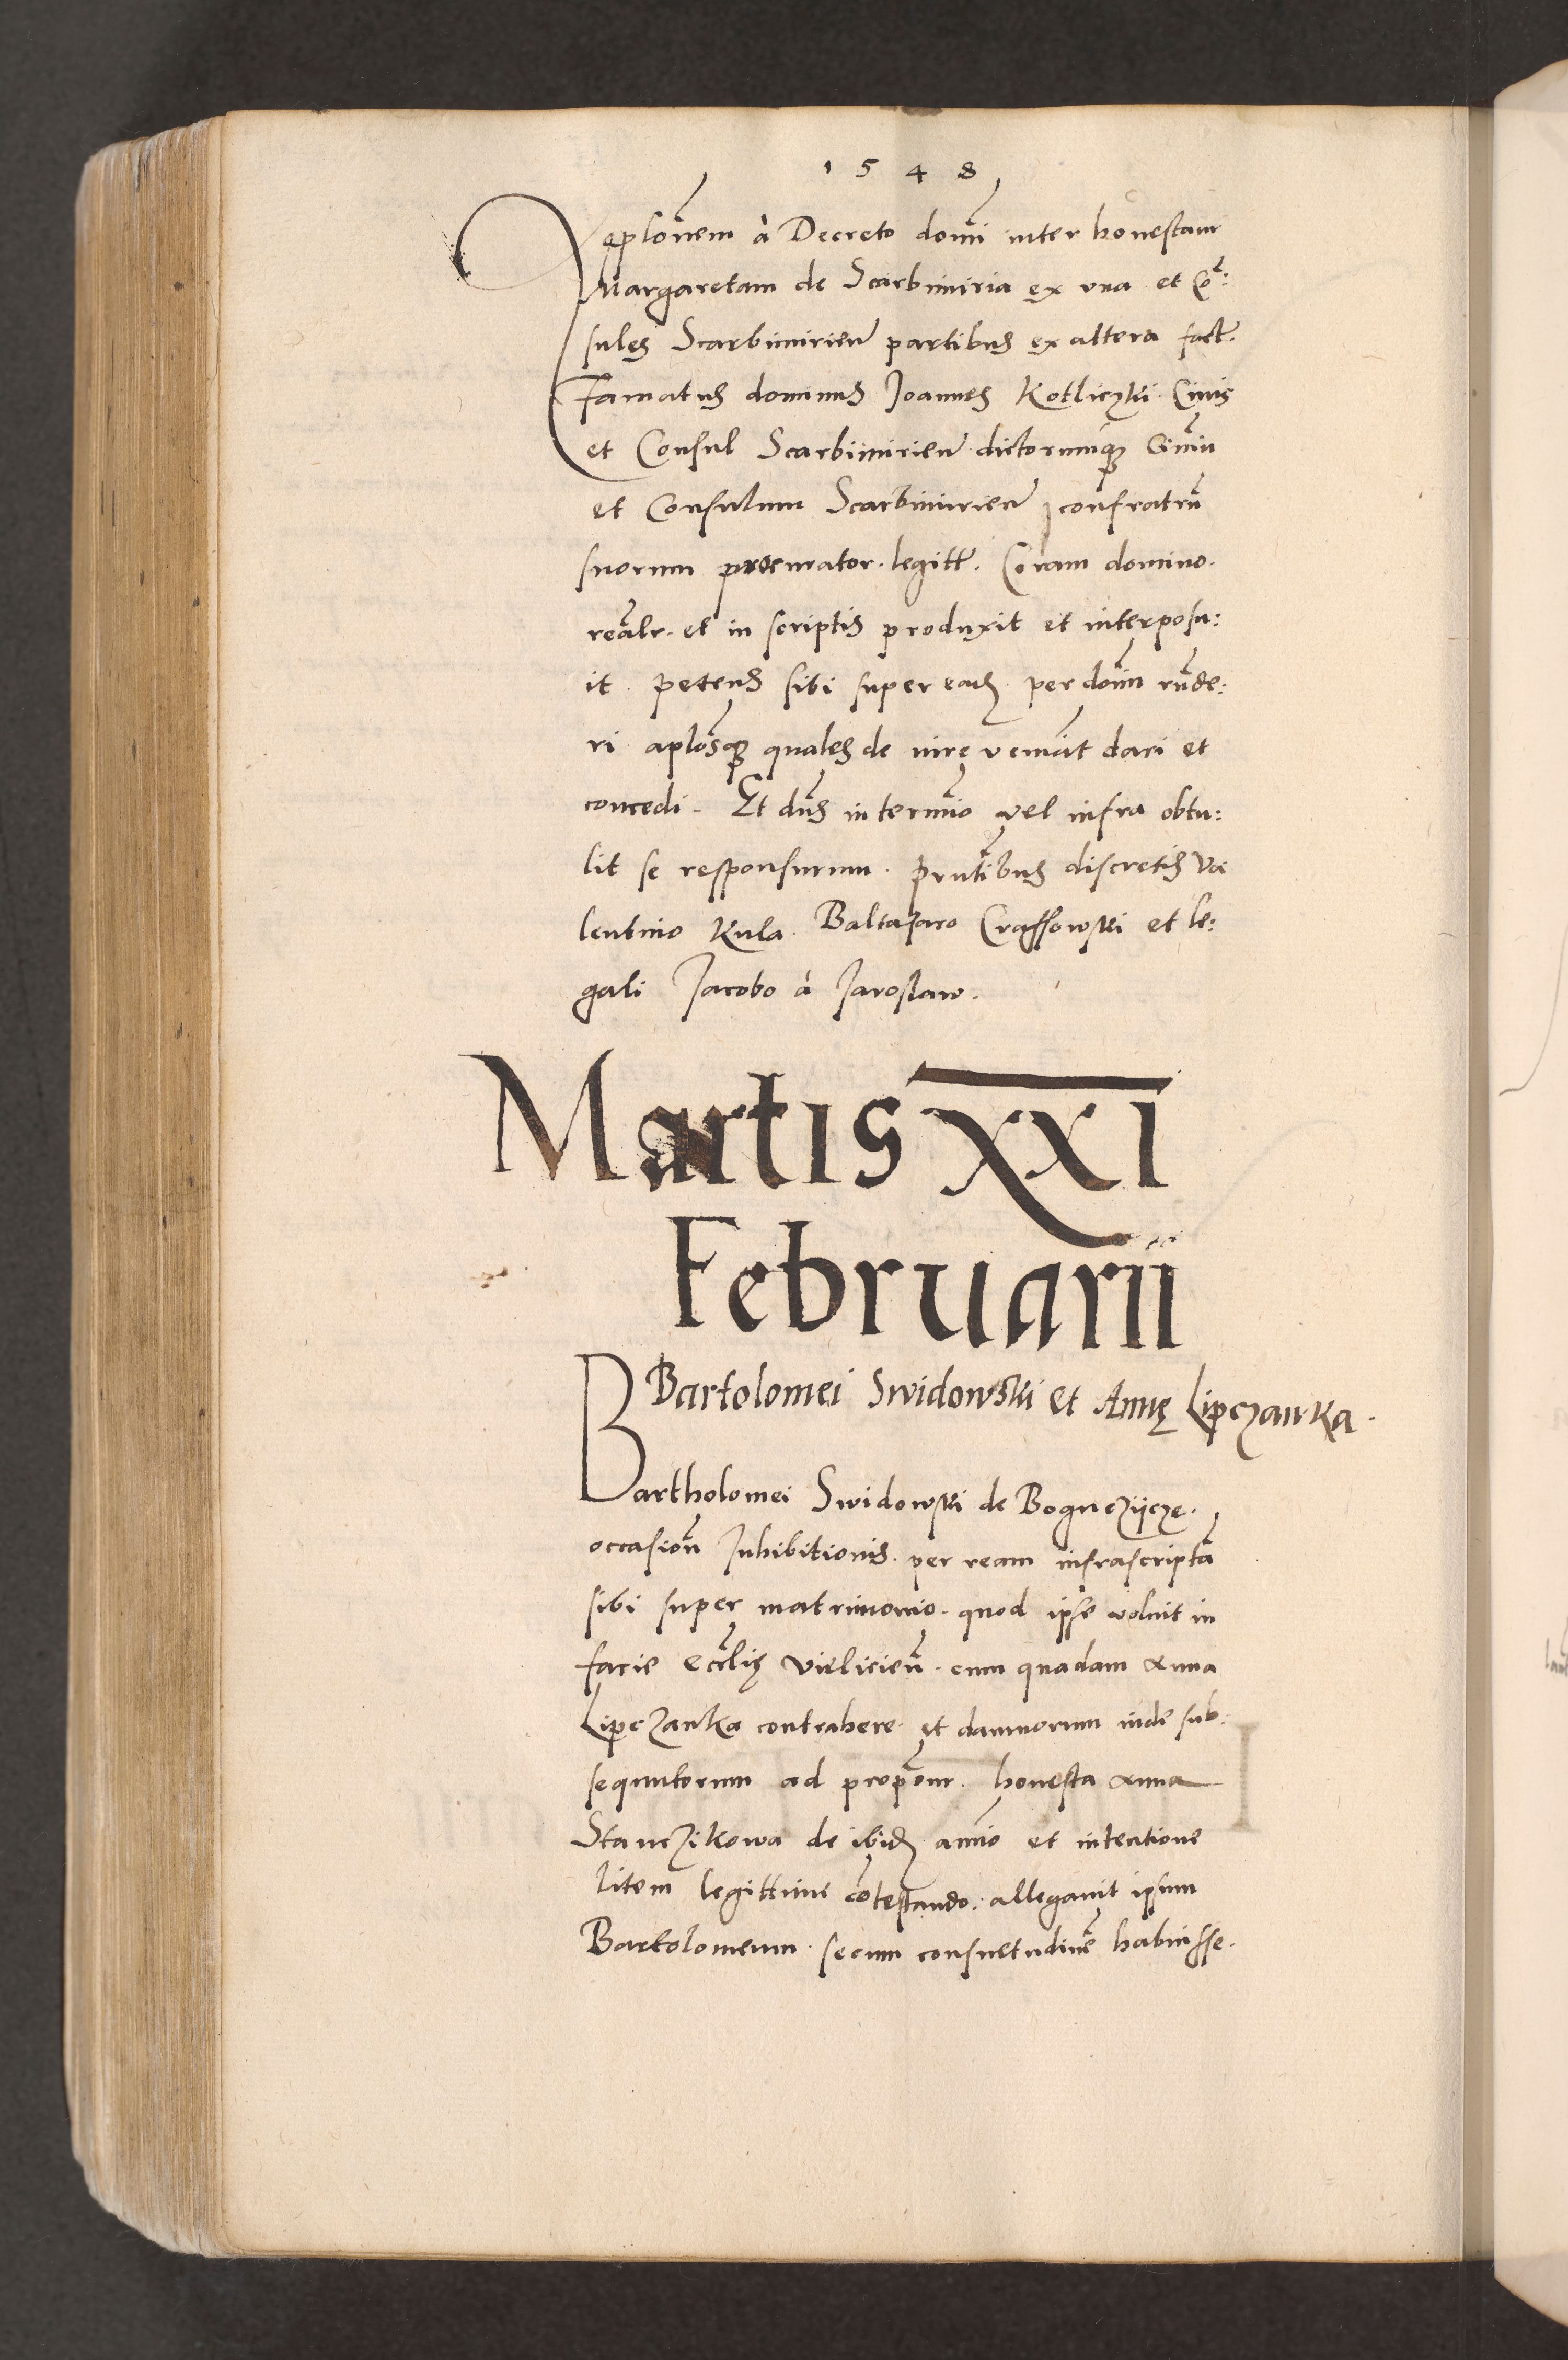 1548
Applōnem à Decreto domī inter honestam
Margaretam de Scarbimiria ex vna et Cō:
sules Scarbimirien̄ partibus ex altera fact̄.
Famatus dominus Joannes Kotliczki Ciuis
et Consul Scarbimirien̄ dictorumq̣ₑ Ciuiū
et Consulum Scarbimirien̄ confratrū
suorum procurator legitt̄. Coram domino.
reālr. et in scriptis produxit et interposu:
it. petens sibi super eadᷤ per domī rn̄de:
ri aplōsqꝫ quales de iure veniāt dari et
concedi. Et dn̄s in termīo vel infra obtu:
lit se responsurum. pn̄tibus discretis Va
lentino Kula. Baltasaro Crassowski et le:
gali Jacobo à Jaroslaw.
Martis XXI
Februarii
Bartolomei Swidowski et Annę Lipczanka.
Bartholomei Swidowski de Boguczijcze.
occasiōn Inhibitionis. per ream infrascriptā
sibi super matrimonio. quod ipse voluit in
facie eccl̄ię vieliciēn. cum quadam Anna
Lipczanka contrahere. et damnorum inde sub:
sequutorum ad propōm. honesta Anna
Stanczikowa de ibidᷤ anīo et intentione
litem legittime cōtestando. allegauit ipsum
Bartolomeum. secum consuetudinē habuisse.